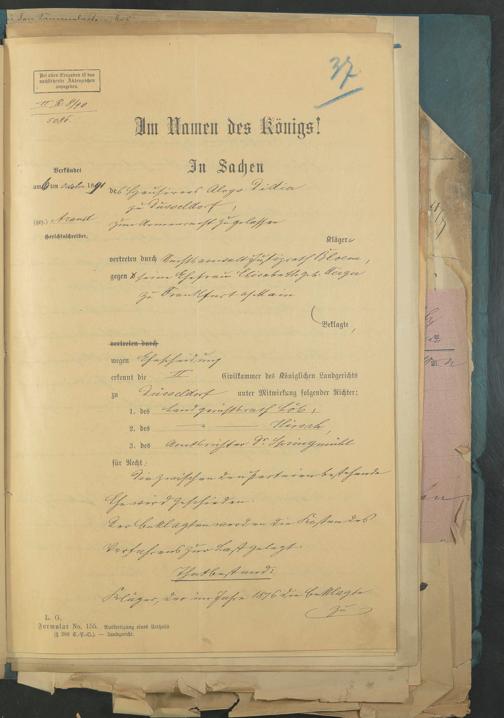 37
Bei allen Eingaben ist das
nachstehende Aktenzeichen
anzugeben.
II R
Im Namen des Königs!
In Sachen
Verkündet
am 6ten October 1891
des Aloys
zu Düsseldorf,
(gez.) Arendt
zum Armenrecht zugelassen
Gerichtsschreiber.
Kläger
vertreten durch Rechtsanwalt Justizrath Bloem,
gegen seine Ehefrau Elisabeth geb.
zu Frankfurt a/Main
Beklagte,
vertreten durch
wegen Ehescheidung
erkennt die II Civilkammer des Königlichen Landgerichts
zu Düsseldorf unter Mitwirkung folgender Richter:
1. des Landgerichtsrath
2. des
3. des Amtsrichter Dr. Springmühl
für Recht:
Die zwischen den Parteien bestehende
Ehe wird geschieden.
Der Beklagten werden die Kosten des
Verfahrens zur Last gelegt.
Thatbestand:
Kläger, der im Jahre 1876 die Beklagte
zu
L. G.
Formular No. 155. Ausfertigung eines Urtheils
(§ 288 C.-P.-O.) — Landgericht.